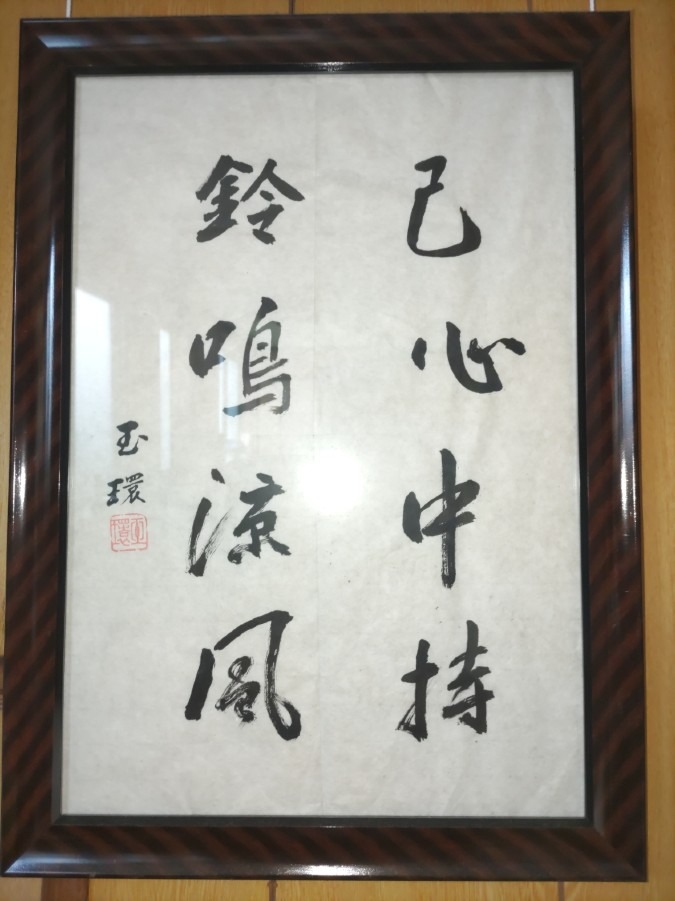 己心中持
鈴鳴涼風
玉環